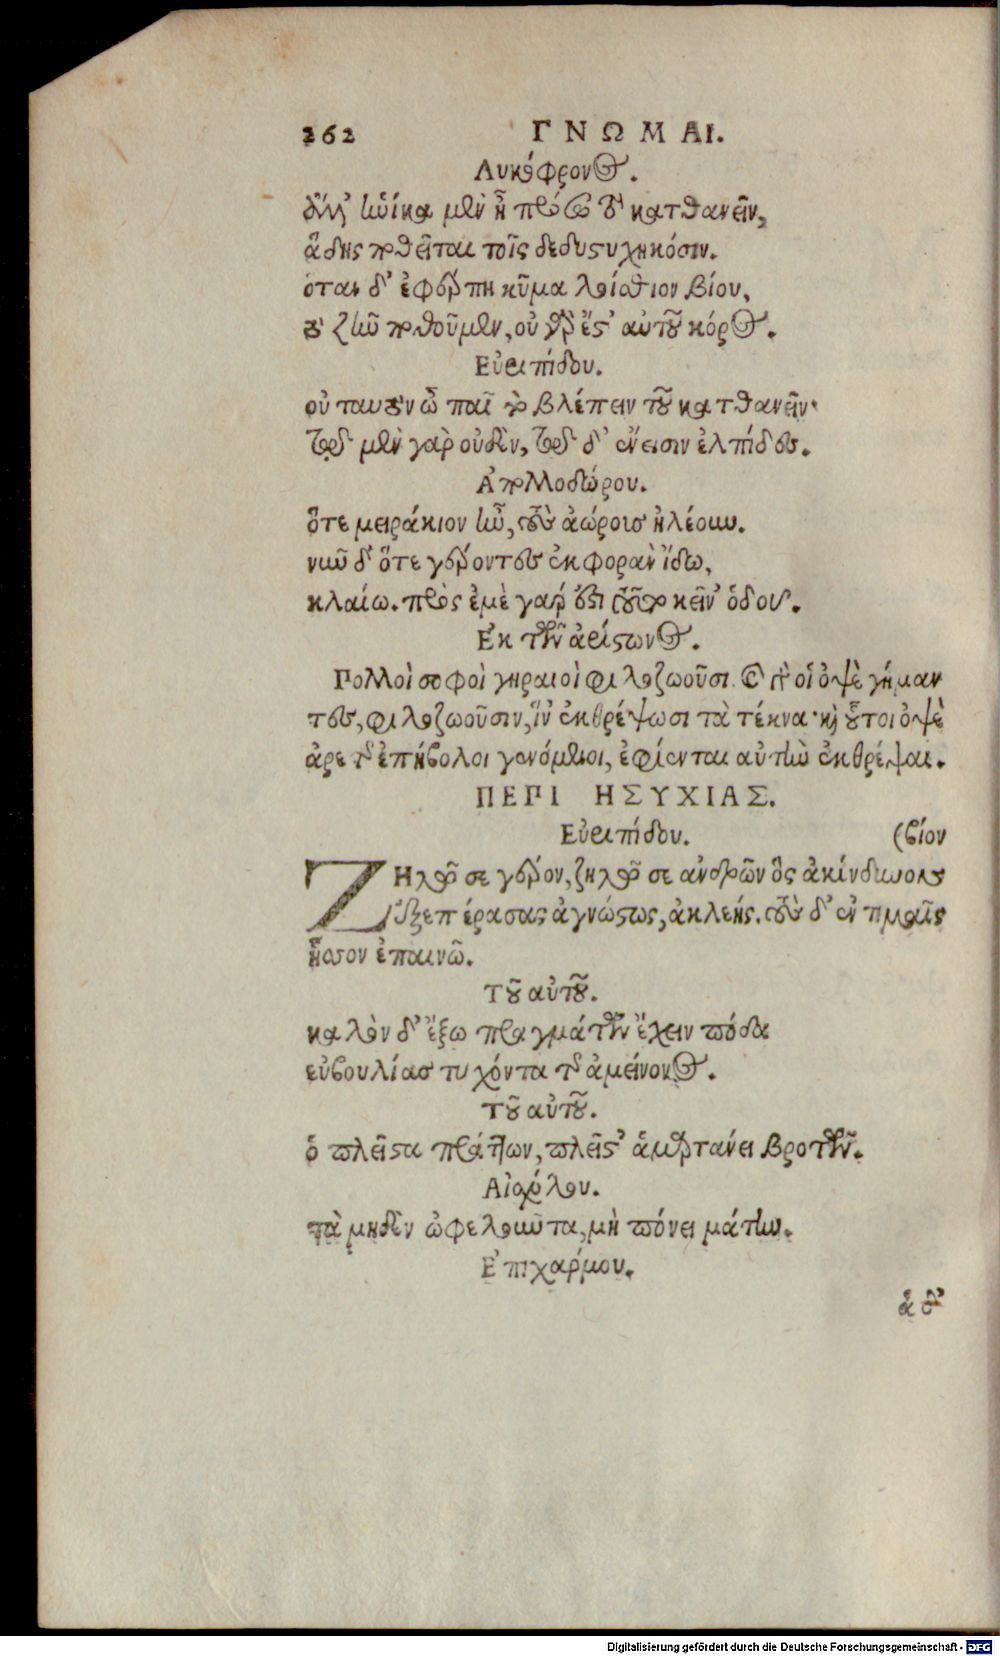 262 ΓΝΩΜΑΙ.
Λυκόφρονος.
ἀλλ' ἡνίκα μὲν ᾖ πρόσω τὸ κατθανεῖν,
ᾅδης ποθεῖται τοῖς δεδυςυχηκόσιν.
ὅταν δ' ἐφέρπη κῦμα λοίσθιον βίου,
τὸ ζῆν ποθοῦμεν, οὐ γὰρ ἔς' αὐτοῦ κόρος.
Εὐριπίδου.
οὐ ταυτὸν ὦ παῖ τὸ βλέπειν τοῦ κατθανεῖν·
τὸ μὲν γὰρ οὐδὲν, τῷ δ' ἔνεισιν ἐλπίδες.
Ἀπολλοδώρου.
ὅτε μειράκιον ἦν, τοὺς ἀώρους ἠλέουν.
νῦν δ' ὅτε γέροντος ἐκφορὰν ἴδω,
κλαίω. πρὸς ἐμὲ γάρ ἐςι τοῦτο κεῖν' ὁδους.
Ἐκ τῶν ἀρίςωνος.
Πολλοὶ σοφοὶ γηραιοὶ φιλοζωοῦσι. καὶ γὰρ οἱ ὀψὲ γήμαν
τες, φιλοζωοῦσιν, ἵν' ἐκθρέψωσι τὰ τέκνα· καὶ οὗτοι ὀψὲ
ἀρετῆς ἐπήβολοι γενόμενοι, ἐφίενται αὐτὴν ἐκθρέψαι.
ΠΕΡΙ ΗΣΥΧΙΑΣ.
Εὐριπίδου. (βίον
ΖΗλῶ σε γέρον, ζηλῶ σε ἀνδρῶν ὃς ἀκίνδυνον
ἐξεπέρασας ἀγνώςως, ἀκλεής. τοὺς δ' ἐν τιμαῖς
ἧσσον ἐπαινῶ.
Τοῦ αὐτοῦ.
καλὸν δ' ἔξω πραγμάτων ἔχειν πόδα
εὐβουλίας τυχόντα τῆς ἀμείνονος.
Τοῦ αὐτοῦ.
ὁ πλεῖςα πράττων, πλεῖς' ἁμαρτάνει βροτῶν.
Αἰσχύλου.
τὰ μηδὲν ὠφελοῦντα, μὴ πόνει μάτην.
Ἐπιχάρμου.
Digitalisierung gefördert durch die Deutsche Forschungsgemeinschaft - DFG